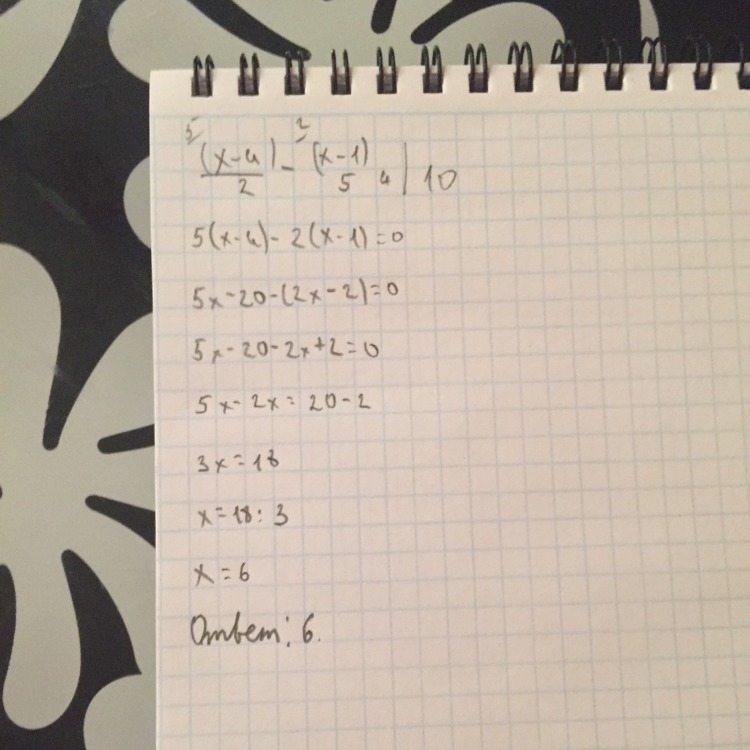 5 (x-4)/2 - 2 (x-1)/5 | 10
5(x-4)-2(x-1)=0
5x-20-(2x-2)=0
5x-20-2x+2=0
5x-2x=20-2
3x=18
x=18:3
x=6
Ответ: 6.